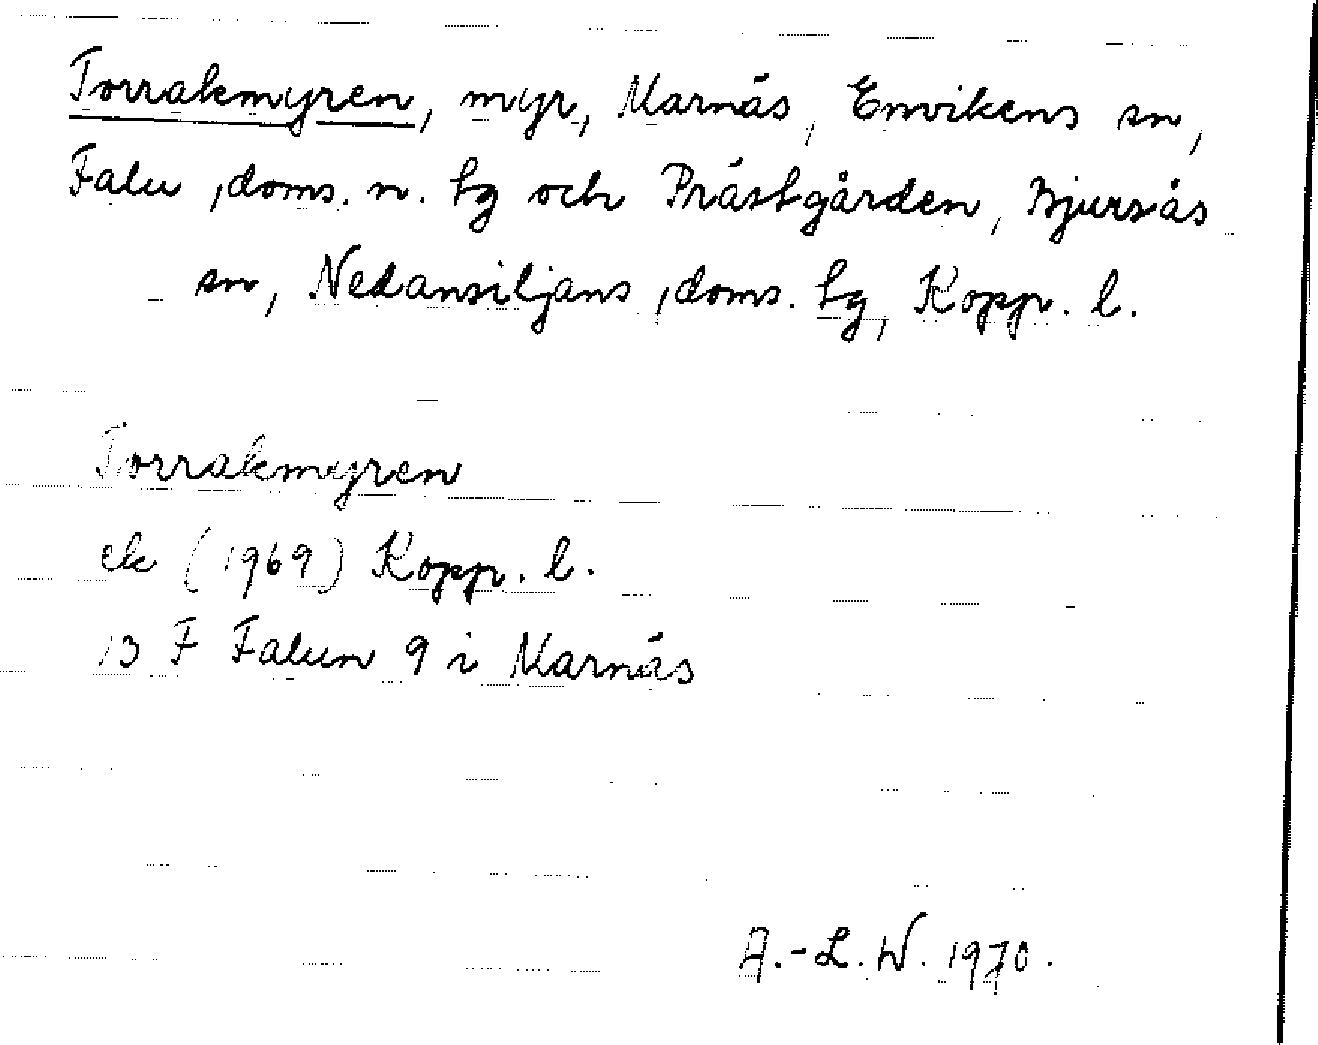 Torrakmyren, myr, Marnäs, Envikens sn,
Falu , doms. n. tg och Prästgården, Bjursås
sn, Nedansiljans , doms. tg, Kopp. l.
Torrakmyren
ek (1969) Kopp. l.
13 F Falun 9 i Marnäs
A.-L. W. 1970.